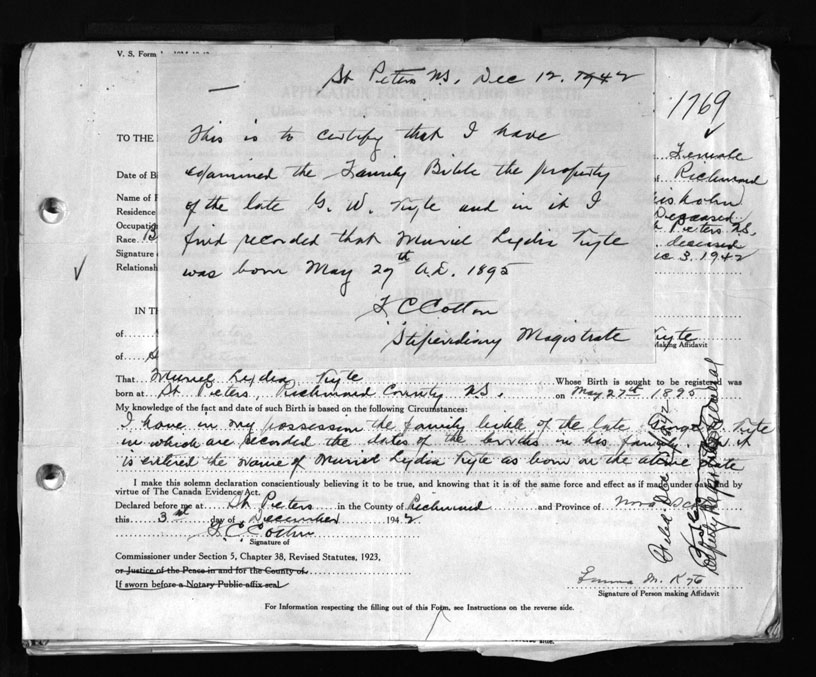 V. S. Form
St Peters NS, Dec 12. 1942
1769
This is to certify that I have
examined the Family Bible the property
of the late G. W. Kyte and in it I
find recorded that Muriel Lydia Kyte
was born May 27th A.D. 1895
F C Cotton
Stipendiary Magistrate
TO THE
Female
Date of B
Richmond
Name of F
Residence
Deceased
Occupatio
Peters NS.
Race
deceased
Signature
3. 1942
Relationsh
IN TH
of
Kyte
Making Affidavit
of
That Muriel Lydia Kyte Whose Birth is sought to be registered was
born at St Peters, Richmond County NS. on May 27th 1895
My knowledge of the fact and date of such Birth is based on the following Circumstances:
I have in my possession the family bible of the late George Kyte
in which are recorded the dates of the births in his family. In it
is entered the name of Muriel Lydia Kyte as born on the above date
I make this solemn declaration conscientiously believing it to be true, and knowing that it is of the same force and effect as if made under oath and by
virtue of The Canada Evidence Act.
Declared before me at St Peters in the County of Richmond and Province of Nova
this 3rd day of December 1942
F. C. Cotton
Signature of
Commissioner under Section 5, Chapter 38, Revised Statutes, 1923,
or Justice of the Peace in and for the County of
If sworn before a Notary Public affix seal
Emma M. Kyte
Signature of Person making Affidavit
For Information respecting the filling out of this Form, see Instructions on the reverse side.
Filed Dec
Deputy Registrar General